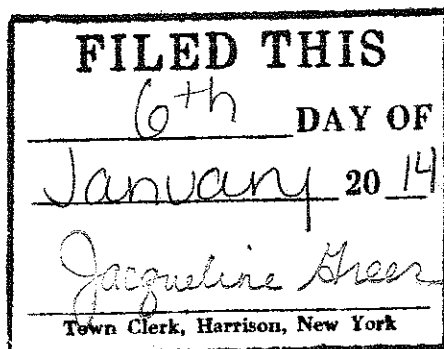 FILED THIS
6th DAY OF
January 20 14
Jacqueline Greer
Town Clerk, Harrison, New York